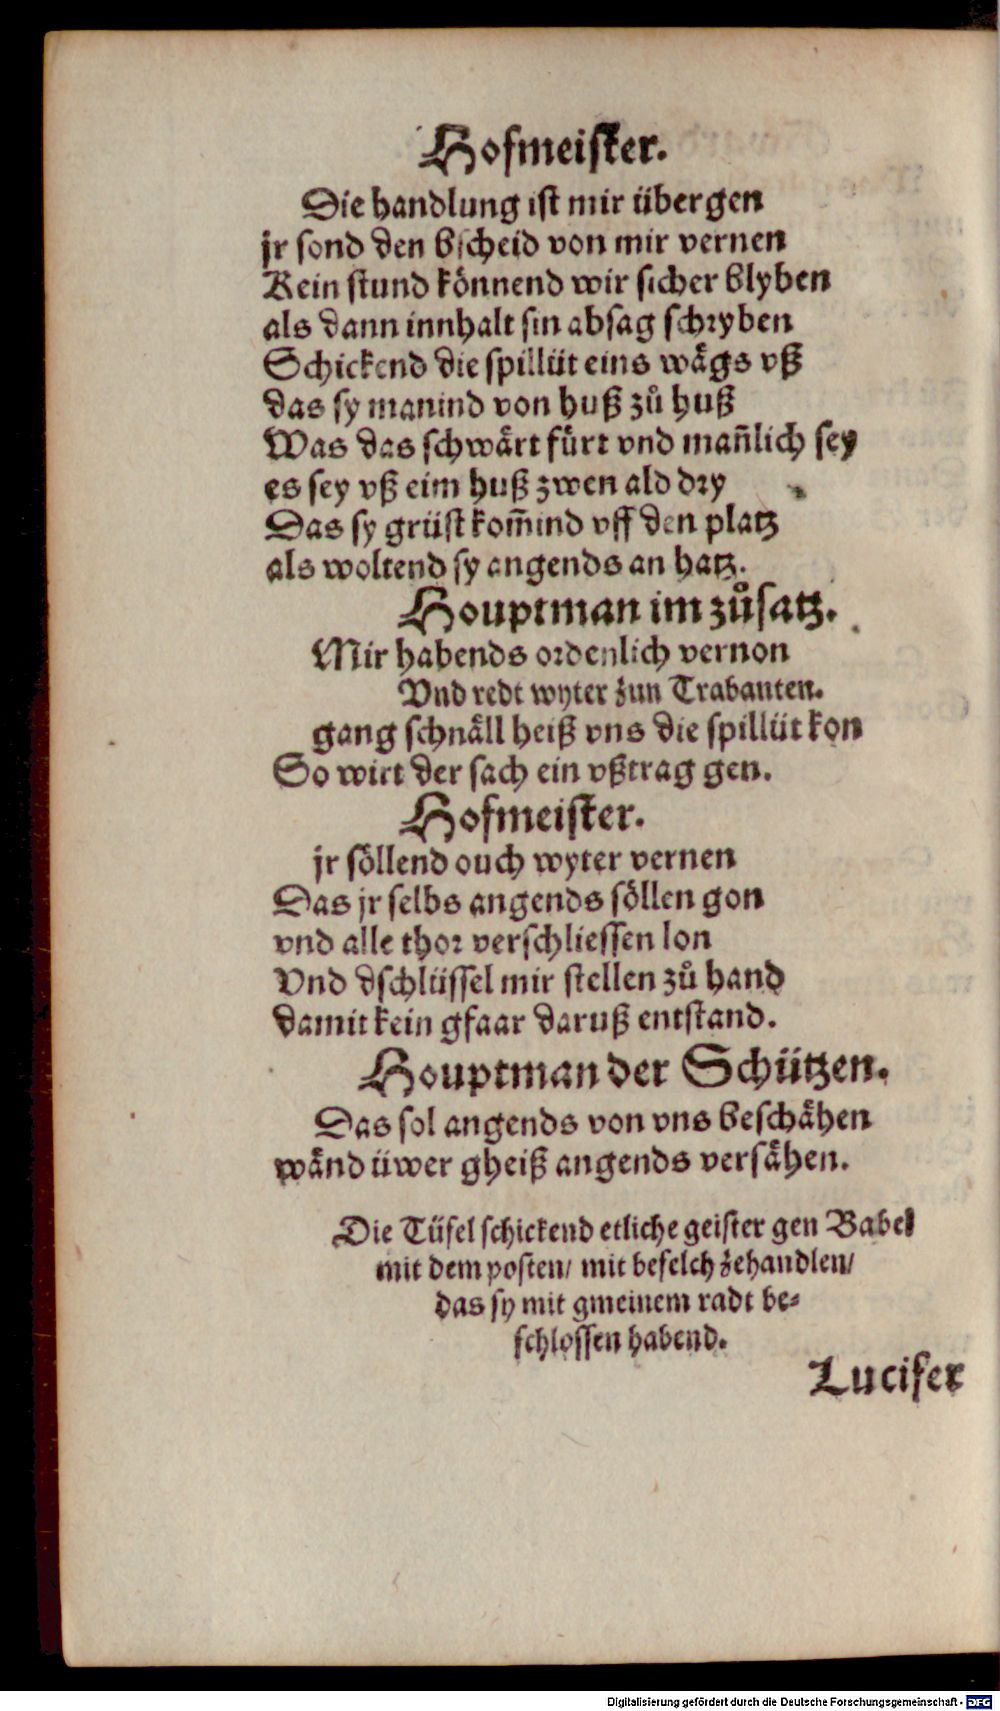 Hofmeister.
Die handlung ist mir übergen
jr sond den bscheid von mir vernen
Kein stund könnend wir sicher blyben
als dann innhalt sin absag schryben
Schickend die spillüt eins wägs vß
das sy manind von huß zů huß
Was das schwärt fürt vnd man̄lich sey
es sey vß eim huß zwen ald dry
Das sy grüst kom̄ind vff den platz
als woltend sy angends an hatz.
Houptman im zůsatz.
Mir habends ordenlich vernon
Vnd redt wyter zun Trabanten.
gang schnäll heiß vns die spillüt kon
So wirt der sach ein vßtrag gen.
Hofmeister.
jr söllend ouch wyter vernen
Das jr selbs angends söllen gon
vnd alle thor verschliessen lon
Vnd dschlüssel mir stellen zů hand
damit kein gfaar daruß entstand.
Houptman der Schützen.
Das sol angends von vns beschähen
wänd üwer gheiß angends versähen.
Die Tüfel schickend etliche geister gen Babel
mit dem posten/ mit befelch zehandlen/
das sy mit gmeinem radt be⸗
schlossen habend.
Lucifer
Digitalisierung gefördert durch die Deutsche Forschungsgemeinschaft - DFG